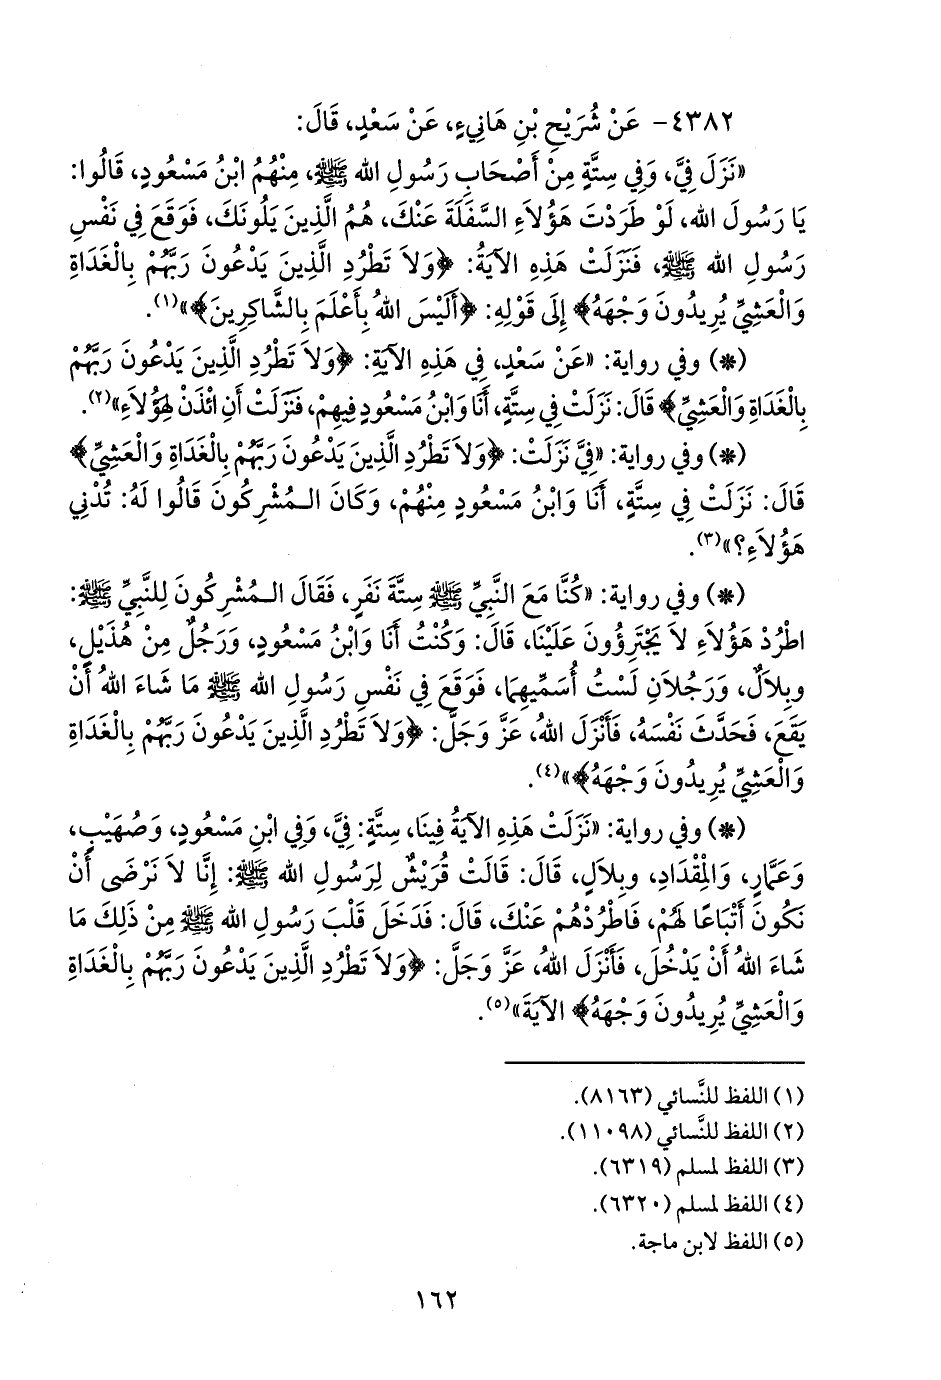 ٤٣٨٢- عَنْ شُرَيْحِ بْنِ هَانِيءٍ، عَنْ سَعْدٍ، قَالَ:
«نَزَلَ فِيَّ، وَفِي سِتَّةٍ مِنْ أَصْحَابِ رَسُولِ الله ﷺ، مِنْهُمُ ابْنُ مَسْعُودٍ، قَالُوا:
يَا رَسُولَ الله، لَوْ طَرَدْتَ هَؤُلاَءِ السَّفَلَةَ عَنْكَ، هُمُ الَّذِينَ يَلُونَكَ، فَوَقَعَ فِي نَفْسِ
رَسُولِ الله ﷺ، فَنَزَلَتْ هَذِهِ الآيَةُ: ﴿وَلاَ تَطْرُدِ الَّذِينَ يَدْعُونَ رَبَّهُمْ بِالْغَدَاةِ
وَالْعَشِيِّ يُرِيدُونَ وَجْهَهُ﴾ إِلَى قَوْلِهِ: ﴿أَلَيْسَ اللهُ بِأَعْلَمَ بِالشَّاكِرِينَ﴾»(١).
(*) وفي رواية: «عَنْ سَعْدٍ، فِي هَذِهِ الآيَةِ: ﴿وَلاَ تَطْرُدِ الَّذِينَ يَدْعُونَ رَبَّهُمْ
بِالْغَدَاةِ وَالْعَشِيِّ﴾ قَالَ: نَزَلَتْ فِي سِتَّةٍ، أَنَا وَابْنُ مَسْعُودٍ فِيهِمْ، فَنَزَلَتْ أَنِ ائْذَنْ لِهَؤُلاَءِ»(٢).
(*) وفي رواية: «فِيَّ نَزَلَتْ: ﴿وَلاَ تَطْرُدِ الَّذِينَ يَدْعُونَ رَبَّهُمْ بِالْغَدَاةِ وَالْعَشِيِّ﴾
قَالَ: نَزَلَتْ فِي سِتَّةٍ، أَنَا وَابْنُ مَسْعُودٍ مِنْهُمْ، وَكَانَ الـمُشْرِكُونَ قَالُوا لَهُ: تُدْنِي
هَؤُلاَءِ؟»(٣).
(*) وفي رواية: «كُنَّا مَعَ النَّبِيِّ ﷺ سِتَّةَ نَفَرٍ، فَقَالَ الـمُشْرِكُونَ لِلنَّبِيِّ ﷺ:
اطْرُدْ هَؤُلاَءِ لاَ يَجْتَرِؤُونَ عَلَيْنَا، قَالَ: وَكُنْتُ أَنَا وَابْنُ مَسْعُودٍ، وَرَجُلٌ مِنْ هُذَيْلٍ،
وبِلاَلٌ، وَرَجُلاَنِ لَسْتُ أُسَمِّيهِمَا، فَوَقَعَ فِي نَفْسِ رَسُولِ الله ﷺ مَا شَاءَ اللهُ أَنْ
يَقَعَ، فَحَدَّثَ نَفْسَهُ، فَأَنْزَلَ اللهُ، عَزَّ وَجَلَّ: ﴿وَلاَ تَطْرُدِ الَّذِينَ يَدْعُونَ رَبَّهُمْ بِالْغَدَاةِ
وَالْعَشِيِّ يُرِيدُونَ وَجْهَهُ﴾»(٤).
(*) وفي رواية: «نَزَلَتْ هَذِهِ الآيَةُ فِينَا، سِتَّةٍ: فِيَّ، وَفِي ابْنِ مَسْعُودٍ، وَصُهَيْبٍ،
وَعَمَّارٍ، وَالمِقْدَادِ، وبِلاَلٍ، قَالَ: قَالَتْ قُرَيْشٌ لِرَسُولِ الله ﷺ: إِنَّا لاَ نَرْضَى أَنْ
نَكُونَ أَتْبَاعًا لَهُمْ، فَاطْرُدْهُمْ عَنْكَ، قَالَ: فَدَخَلَ قَلْبَ رَسُولِ الله ﷺ مِنْ ذَلِكَ مَا
شَاءَ اللهُ أَنْ يَدْخُلَ، فَأَنْزَلَ اللهُ، عَزَّ وَجَلَّ: ﴿وَلاَ تَطْرُدِ الَّذِينَ يَدْعُونَ رَبَّهُمْ بِالْغَدَاةِ
وَالْعَشِيِّ يُرِيدُونَ وَجْهَهُ﴾ الآيَةَ»(٥).
(١) اللفظ للنَّسائي (٨١٦٣).
(٢) اللفظ للنَّسائي (١١٠٩٨).
(٣) اللفظ لمسلم (٦٣١٩).
(٤) اللفظ لمسلم (٦٣٢٠).
(٥) اللفظ لابن ماجة.
١٦٢